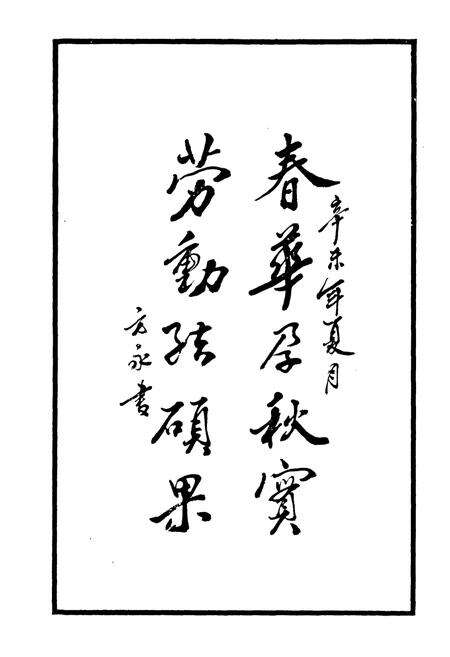 辛未年夏月
春華孕秋實
劳動结碩果
方永書